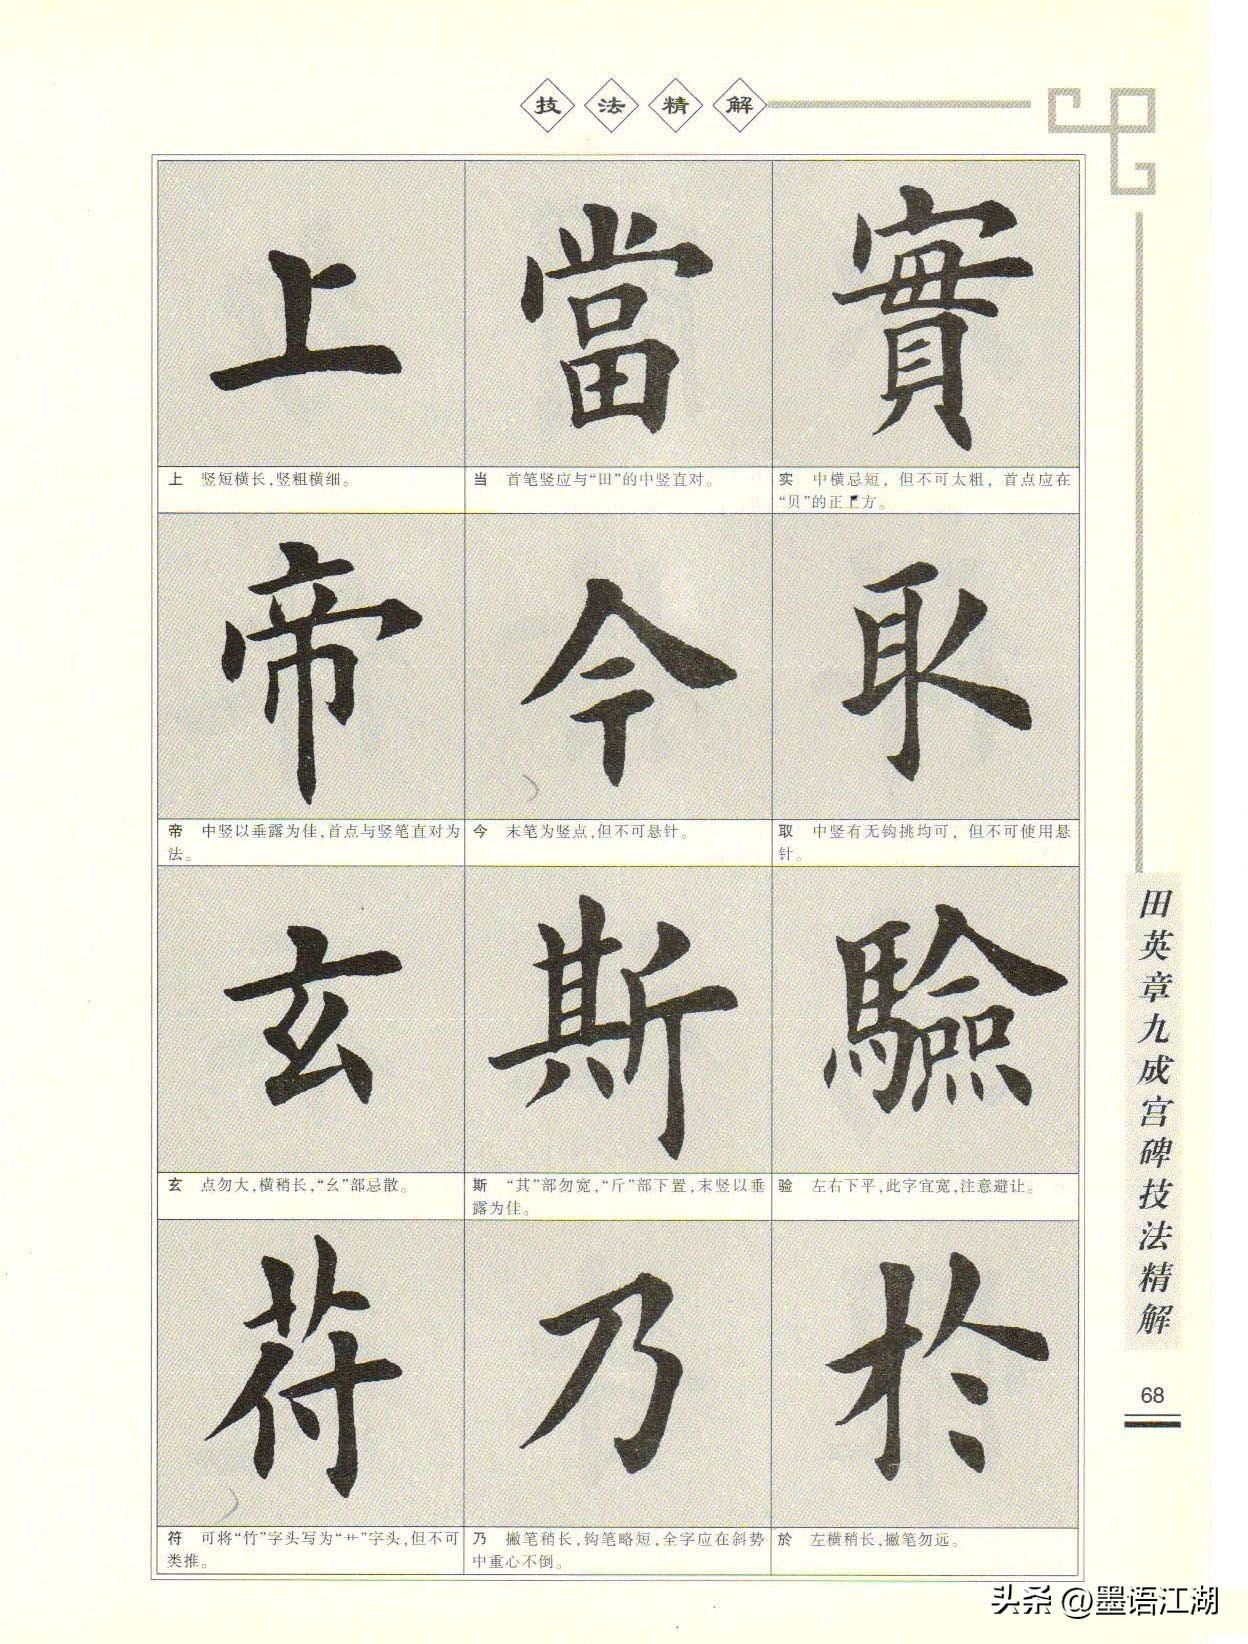 技法精解
上 當 實
上 竖短横长,竖粗横细。
当 首笔竖应与“田”的中竖直对。
实 中横忌短，但不可太粗，首点应在
“贝”的正上方。
帝 今 取
帝 中竖以垂露为佳,首点与竖笔直对为
法。
今 末笔为竖点,但不可悬针。
取 中竖有无钩挑均可，但不可使用悬
针。
玄 斯 驗
玄 点勿大,横稍长,“幺”部忌散。
斯 “其”部勿宽,“斤”部下置,末竖以垂
露为佳。
验 左右下平,此字宜宽,注意避让。
符 乃 於
符 可将“竹”字头写为“艹”字头,但不可
类推。
乃 撇笔稍长,钩笔略短,全字应在斜势
中重心不倒。
於 左横稍长,撇笔勿远。
田英章九成宫碑技法精解
68
头条 @墨语江湖